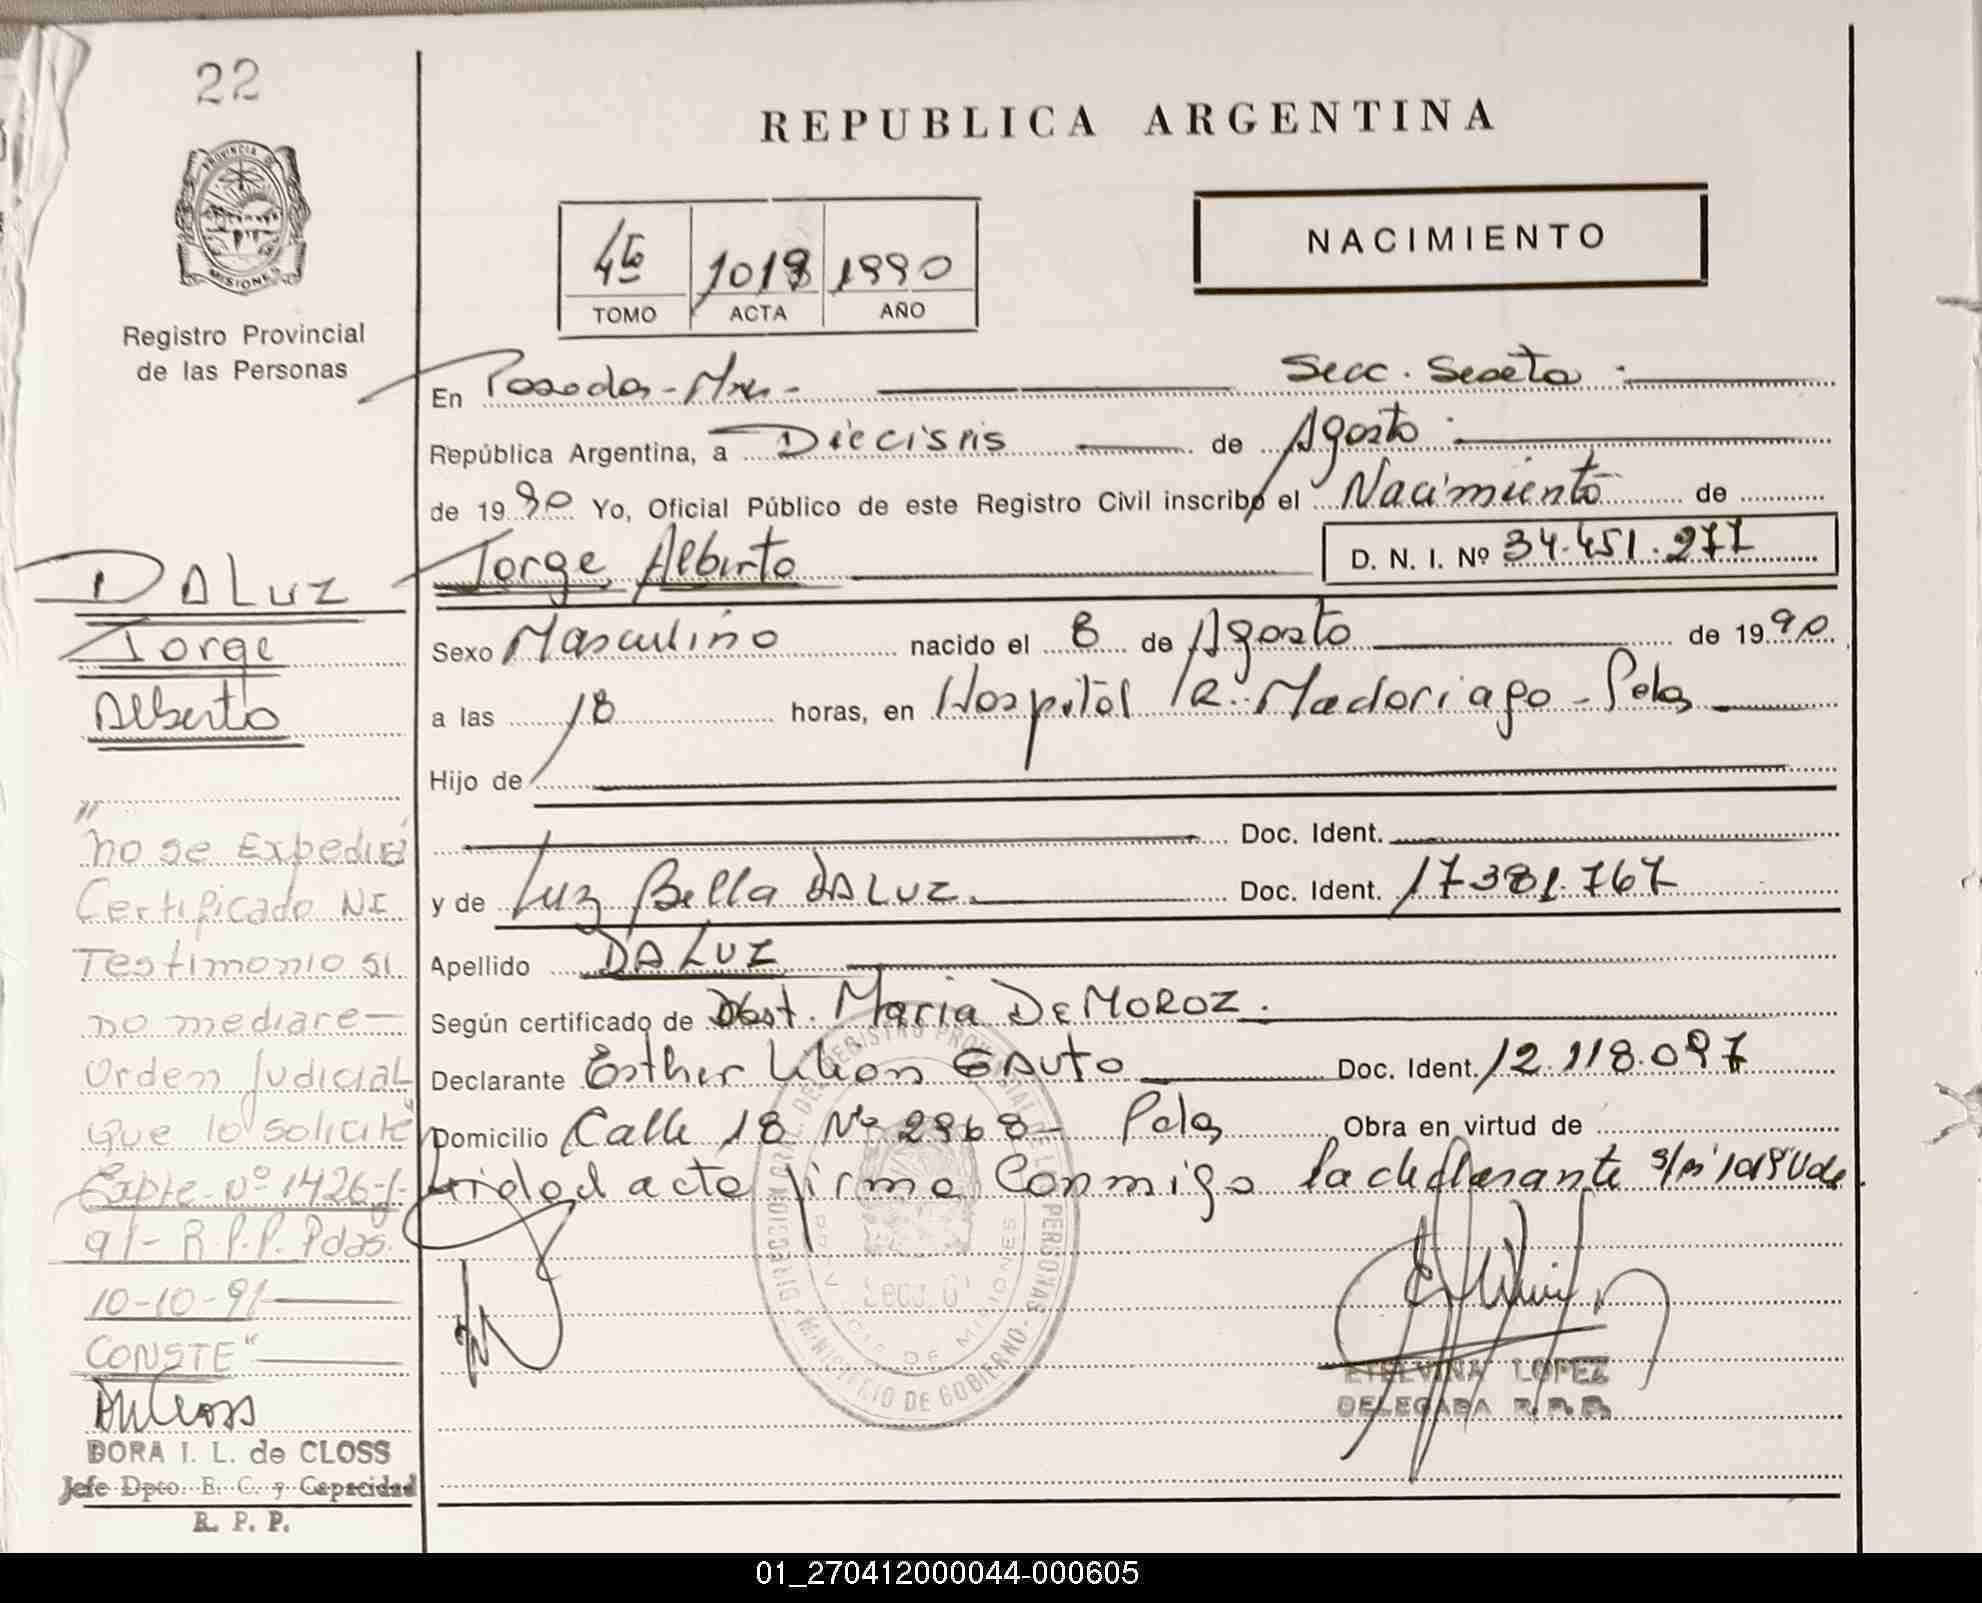 22
REPUBLICA ARGENTINA
PROVINCIA DE
MISIONES
Registro Provincial
de las Personas
NACIMIENTO
4to 1018 1990
TOMO ACTA AÑO
En Posadas-Mnes- Secc. Sexta
República Argentina, a Dieciseis de Agosto
de 1990 Yo, Oficial Público de este Registro Civil inscribo el Nacimiento de
Jorge Alberto D. N. I. Nº 34.451.277
Sexo Masculino nacido el 8 de Agosto de 1990
a las 18 horas, en Hospital R. Madariaga - Pdas
Hijo de
Doc. Ident.
y de Luz Bella DA LUZ Doc. Ident. 17381.767
Apellido DA LUZ
Según certificado de Obst. Maria De MOROZ.
Declarante Esther Lilian GAUTO Doc. Ident. 12.118.097
Domicilio Calle 18 Nº 2968- Pdas Obra en virtud de
acto firma Conmigo la declarante
DA LUZ
Jorge
Alberto
"
"no se Expedirá
Certificado NI
Testimonio si
no mediare-
Orden Judicial
que lo solicite"
Expte. nº 1426-J-
91- R.P.P. Pdas.
10-10-91
CONSTE"
DORA I. L. de CLOSS
Jefe Dpto. E. C. y Capacidad
R. P. P.
REGISTRO PROVINCIAL DE LAS PERSONAS
MINISTERIO DE GOBIERNO
PROVINCIA DE MISIONES
ETELVINA LOPEZ
DELEGADA R.P.P.
01_270412000044-000605